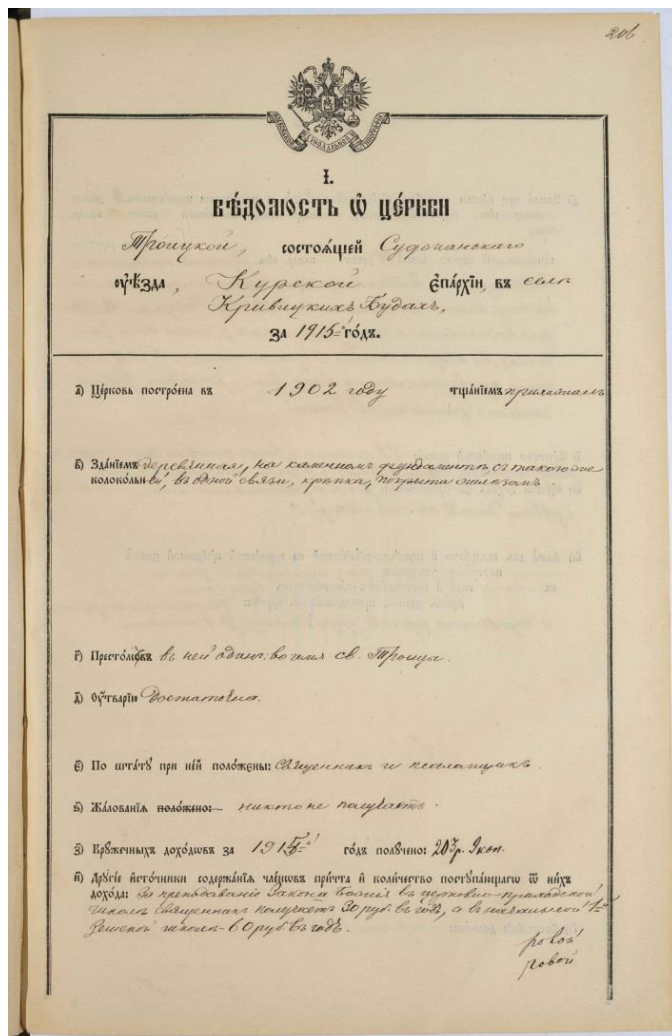 206
І.
ВѢДОМОСТЬ Ѡ ЦЕ́РКВИ
Троицкой, состоѧ́щей Суджанскаго
оуѣ́зда, Курской Єпа́рхїи, въ селѣ
Кривицкихъ Будахъ,
за 1915й го́дъ.
а҃) Це́рковь постро́ена въ 1902 году тща́нїемъ прихожанъ
в҃) Зда́нїемъ деревянная, на каменномъ фундаментѣ, съ такою же
колоко́льнею, въ одной связи, крѣпка, покрыта желѣзомъ.
г҃) Престо́лѡвъ въ ней одинъ: во имя св. Троицы.
д҃) Оу҆́тварїю достаточна.
є҃) По шта́тꙋ при не́й поло́жены: священникъ и псаломщикъ.
ѕ҃) Жа́лованїѧ поло́жено: никто не получаетъ.
з҃) Крꙋ́жечныхъ дохо́дѡвъ за 1915й го́дъ полꙋ́чено: 207р. 9 коп.
и҃) Дрꙋгі́е и҆сто́чники содержа́нїѧ чле́нѡвъ при́чта и҆ коли́чество постꙋпа́ющагѡ ѿ ни́хъ
дохо́да: За преподаваніе Закона Божія въ церковно-приходской
школѣ священникъ получаетъ 30 руб. въ годъ, а въ начальной 1-й
земской школѣ - 60 руб. въ годъ.
ровой
ровой